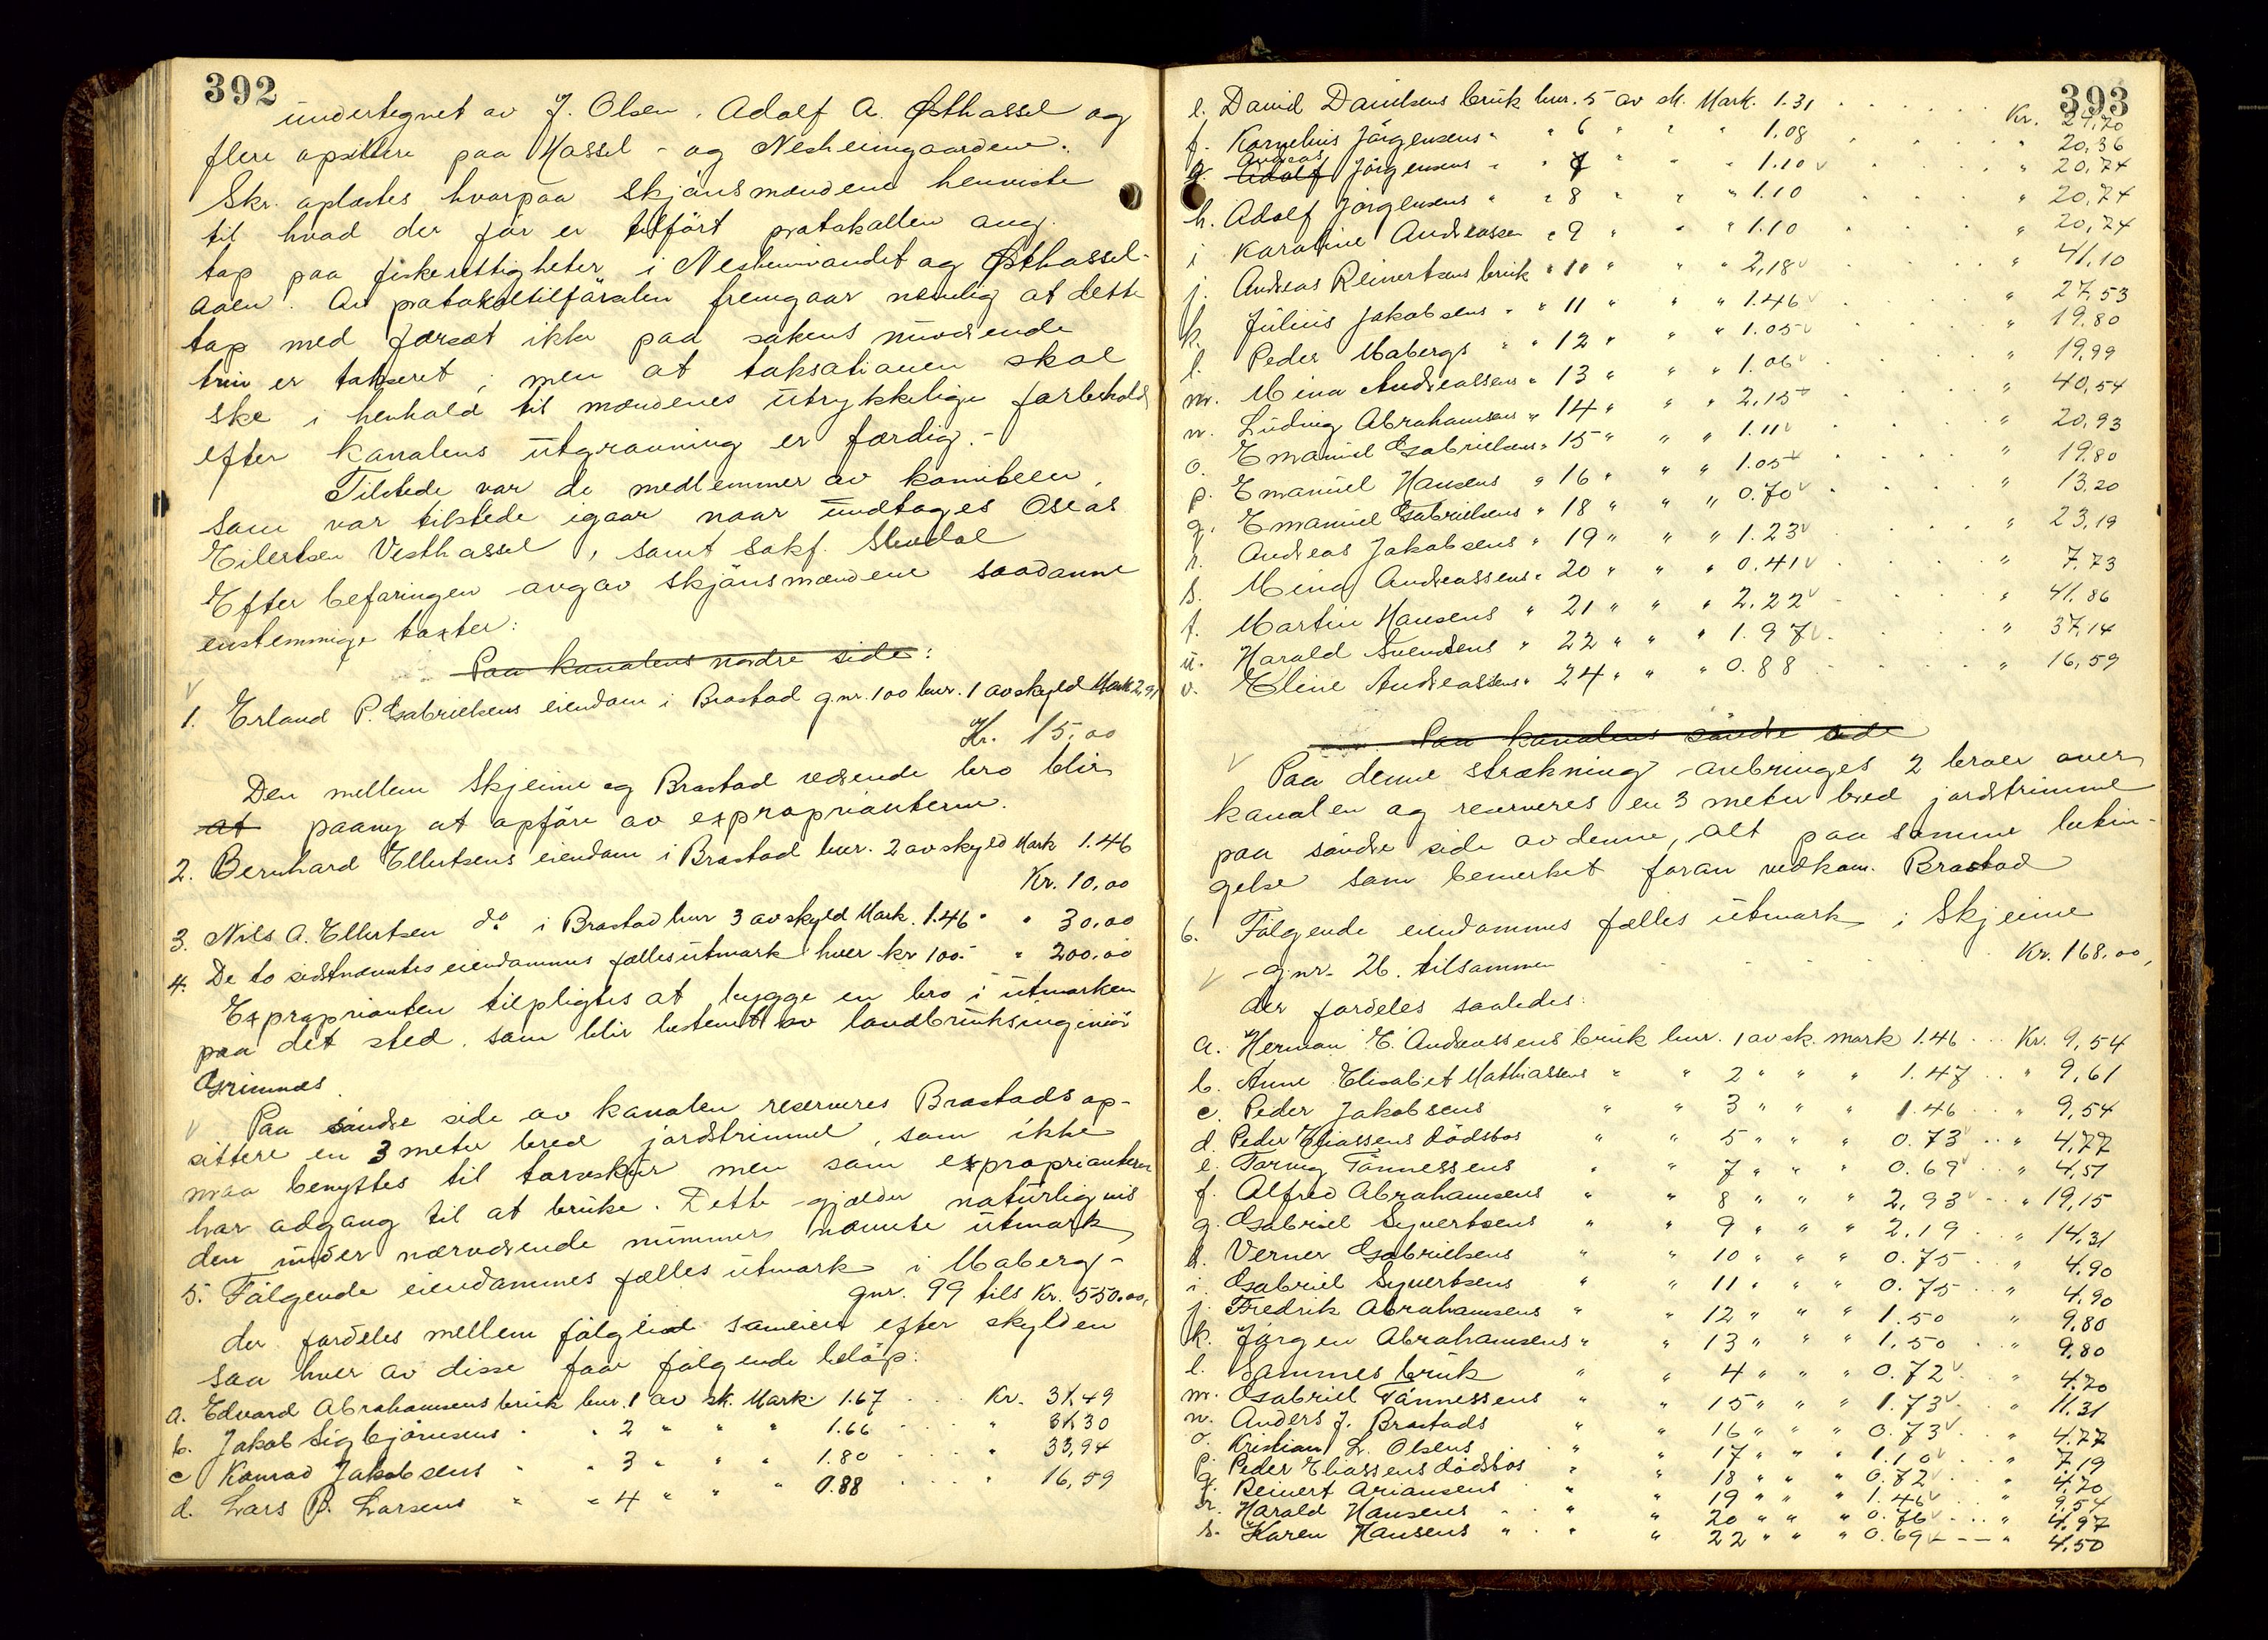 392
undertegnet av J. Olsen, Adolf A. Østhassel og
flere opsittere paa Hassel- og Nesheimgaardene.
Skr. oplæstes hvorpaa skjønsmændene henviste
til hvad der før er tilført protokollen ang.
tap paa fiskerettigheter i Nesheimvandet og Østhassel-
aaen. Av protokoltilførselen fremgaar nemlig at dette
tap med forsæt ikke paa sakens nuværende
trin er taksert, men at taksationen skal
ske i henhold til mændenes utrykkelige forbehold
efter kanalens utgravning er færdig.-
Tilstede var de medlemmer av komiteen,
som var tilstede igaar naar undtages Oseas
Eilertsen Vesthassel, samt sakf. Stendal
Efter befaringen avgav skjønsmændene saadanne
enstemmige takster:
Paa kanalens nordre side:
1. Erland P. Gabrielsens eiendom i Brastad gnr. 100 bnr. 1 av skyld Mark 2,91
Kr. 15,00
Den mellem Skjeime og Brastad værende bro blir
at paany at opføre av exproprianterne.
2. Bernhard Ellertsens eiendom i Brastad bnr. 2 av skyld Mark 1.46
Kr. 10,00
3. Nils A. Ellertsen do i Brastad bnr 3 av skyld Mark. 1.46 " " 30,00
4. De to sidstnævntes eiendommes fællesutmark hver kr 100.- " 200,00
Exproprianten tilpligtes at bygge en bro i utmarken
paa det sted, som blir bestemt av landbruksingeniør
Grimnes.
Paa søndre side av kanalen reserveres Brastads op-
sittere en 3 meter bred jordstrimmel, som ikke
maa benyttes til torvskjær men som exproprianterne
har adgang til at bruke. Dette gjælder naturligvis
den under nærværende nummer nævnte utmark
5. Følgende eiendommes fælles utmark i Maberg-
gnr. 99 tils Kr. 550.00,
der fordeles mellem følgende sameiere efter skylden
saa hver av disse faar følgende beløp:
a. Edvard Abrahamsens bruk bnr. 1 av sk. Mark 1.67 . . Kr. 31.49
b. Jakob Sigbjørnsens " " 2 " " " 1.66 . . " 31.30
c Konrad Jakobsens " " 3 " " " 1.80 . . " 33,94
d. Lars B. Larsens " " 4 " " " 0.88 . . " 16,59
393
e. David Danielsens bruk bnr. 5 av sk. Mark. 1.31 . . . Kr. 24,70
f. Kornelius Jørgensens " " 6 " " " 1.08 . . . " 20,36
Andreas
g. Adolf Jørgensens " " 7 " " " 1.10 . . . " 20,74
h. Adolf Jørgensens " " 8 " " " 1.10 . . . " 20,74
i Karoline Andreassen " 9 " " " 1.10 . . . " 20,74
j. Andreas Reinertsens bruk " 10 " " " 2,18 . . . " 41,10
k. Julius Jakobsens " " 11 " " " 1.46 . . . " 27,53
l. Peder Mabergs " " 12 " " " 1.05 . . . " 19.80
m. Mina Andreassens " 13 " " " 1.06 . . . " 19,99
n. Ludvig Abrahamsens " 14 " " " 2,15 . . . " 40,54
o. Emanuel Gabrielsens " 15 " " " 1.11 . . . " 20,93
p. Emanuel Hansens " 16 " " " 1.05 . . . " 19.80
q. Emanuel Gabrielsens " 18 " " " 0.70 . . . " 13,20
r. Andreas Jakobsens " 19 " " " 1.23 . . . " 23,19
s. Mina Andreassens " 20 " " " 0.41 . . . " 7.73
t. Martin Hansens " 21 " " " 2.22 . . . " 41.86
u. Harald Svendsens " 22 " " " 1.97 . . . " 37,14
v. Eline Andreassens " 24 " " " 0.88 . . . " 16,59
Paa kanalens søndre side
Paa denne strækning anbringes 2 broer over
kanalen og reserveres en 3 meter bred jordstrimmel
paa søndre side av denne, alt paa samme betin-
gelse som bemerket foran vedkom. Brastad
6. Følgende eiendommes fælles utmark i Skjeime
gnr. 26. tilsammen . . . Kr. 168.00,
der fordeles saaledes:
a. Herman E. Andreassens bruk bnr. 1 av sk. mark 1.46 . . Kr. 9,54
b. Anne Elisabet Mathiassens " " 2 " " " 1.47 . . " 9,61
c. Peder Jakobsens " " 3 " " " 1.46 . . " 9,54
d. Peder Eliassens dødsbos " " 5 " " " 0.73 . . " 4,77
e. Torvig Tønnessens " " 7 " " " 0.69 . . " 4,51
f. Alfred Abrahamsens " " 8 " " " 2,93 . . " 19,15
g. Gabriel Syvertsens " " 9 " " " 2.19 . . " 14,31
h. Verner Gabrielsens " " 10 " " " 0.75 . . " 4.90
i. Gabriel Syvertsens " " 11 " " " 0.75 . . " 4.90
j. Fredrik Abrahamsens " " 12 " " " 1.50 " 9,80
k. Jørgen Abrahamsens " " 13 " " " 1,50 . . " 9,80
l. Sammes bruk " " 4 " " " 0.72 . . " 4.70
m. Gabriel Tønnessens " " 15 " " " 1.73 . . " 11,31
n. Anders J. Brastads " " 16 " " " 0.73 . . " 4.77
o. Kristian L. Olsens " " 17 " " " 1.10 . . " 7,19
p. Peder Eliassens dødsbos " " 18 " " " 0.72 . . " 4,70
q. Reinert Ariansens " " 19 " " " 1.46 . . " 9,54
r. Harald Hansens " " 20 " " " 0.76 . . " 4.97
s. Karen Hansens " " 22 " " " 0.69 - - " 4,50